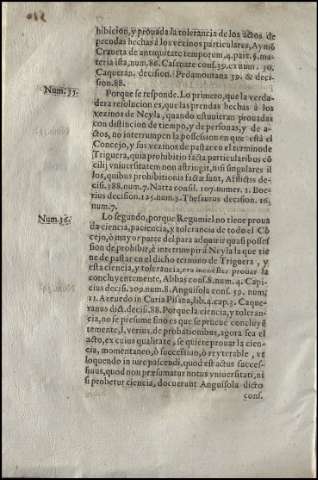 hibicion, y prouada la tolerancia de los actos de
prendas hechas à los vezinos particulares, Aymõ
Craueta de antiquitate temporum, 4. part. §. ma
teria ista, num. 86. Casenate cons. 39. ex num. 30.
Caqueran. decision. Pedamontana 39. & deci-
sion. 88.
Num. 35.
Porque se responde. Lo primero, que la verda-
dera resolucion es, que las prendas hechas à los
vezinos de Neyla, quando estuuieran prouadas
con distincion de tiempo, y de personas, y de a-
ctos, no interrumpen la possession en que està el
Concejo, y sus vezinos de pastar en el termino de
Triguera, quia prohibitio facta particularibus cõ
cilij vniuersitatem non astringit, nisi singulares il
los, quibus prohibitionis factæ sunt, Afflictis de-
cisi. 388. num. 7. Natta consil. 107. numer. 1. Boe-
rius decision. 125. num. 3. Thesaurus decision. 16.
num. 7.
Num. 36.
Lo segundo, porque Regumiel no tiene proua
da ciencia, paciencia, y tolerancia de todo el Cõ
cejo, ò mayor parte del para adquirir quasi posses
sion de prohibir, è interrumpir à Neyla la que tie
ne de pastar en el dicho termino de Triguera, y
esta ciencia, y tolerancia, era necessario prouar la
concluyentemente, Abbas cons. 8. num. 4. Capi-
cius decis. 209. num. 8. Anguisola cons. 59. num.
11. Azeuedo in Curia Pisana, lib. 4. cap. 3. Caque-
ranus dict. decis. 88. Porque la ciencia, y toleran-
cia, no se presume sino es que se prueue concluyẽ
temente, l. verius, de probationibus, agora sea el
acto, ex cuius qualitate, se quiere prouar la cien-
cia, momentaneo, ò successiuo, ò reyterable, vt
loquendo in iure pascendi, quod est actus succes-
siuus, quod non præsumatur notus vniuersitati, ni
si probetur ciencia, docuerunt Anguisola dicto
cons.